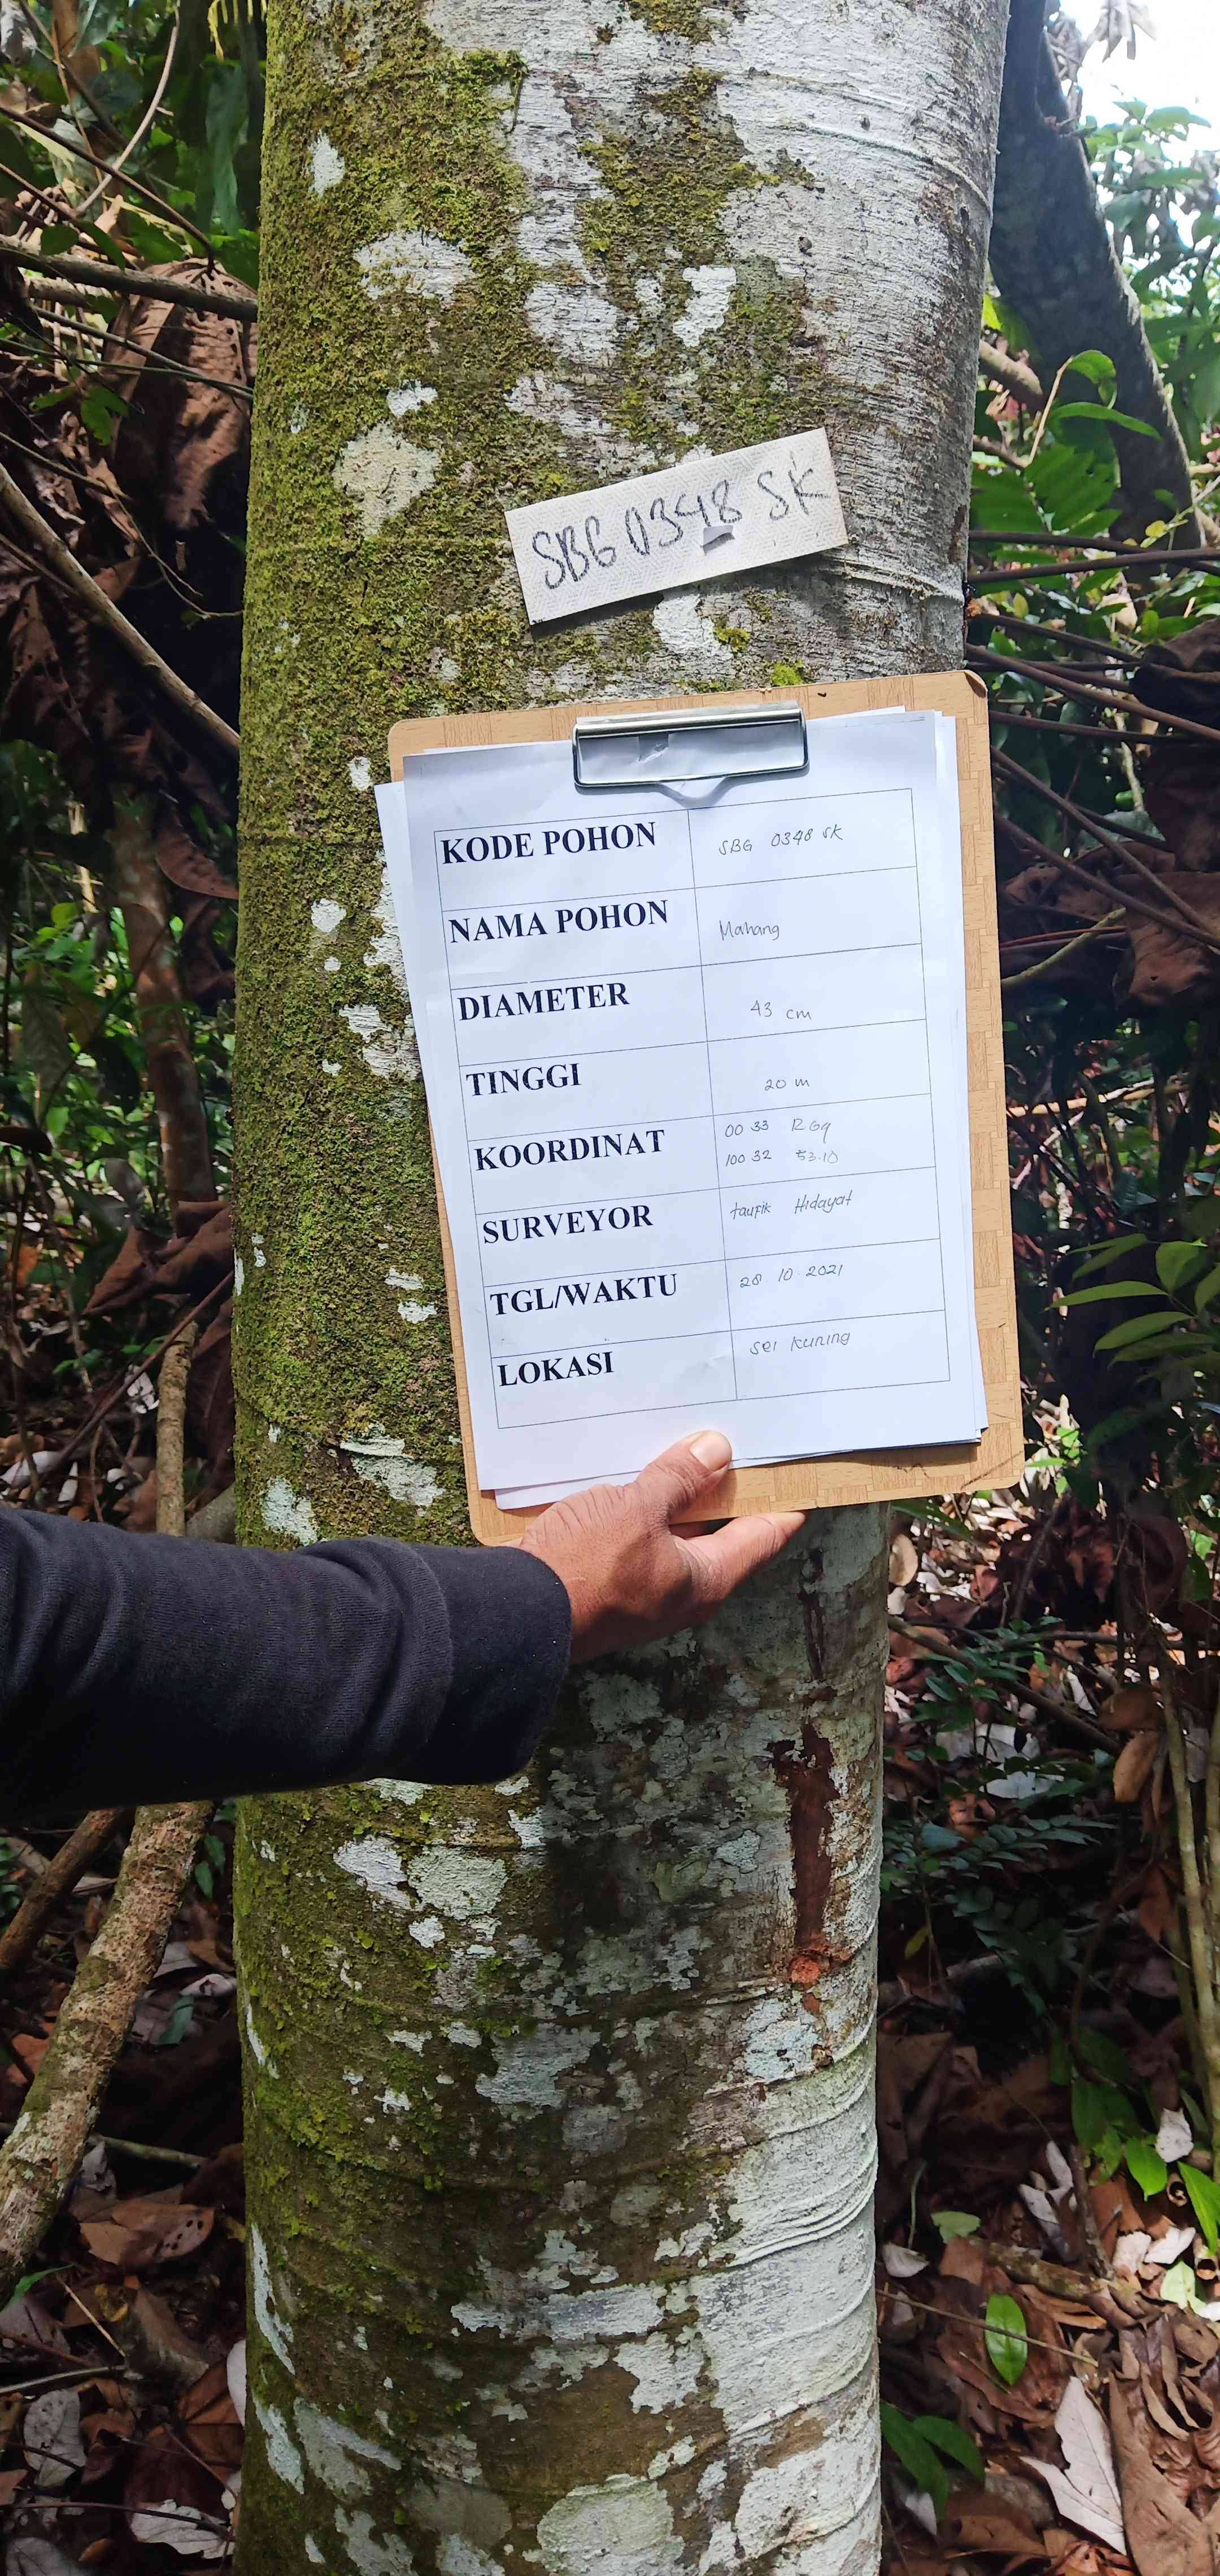 SBG 0348 SK
KODE POHON SBG 0348 SK
NAMA POHON Mahang
DIAMETER 43 cm
TINGGI 20 m
KOORDINAT 00 33
100 32 53.10
SURVEYOR taufik Hidayat
TGL/WAKTU 28 10 2021
LOKASI sei kuning